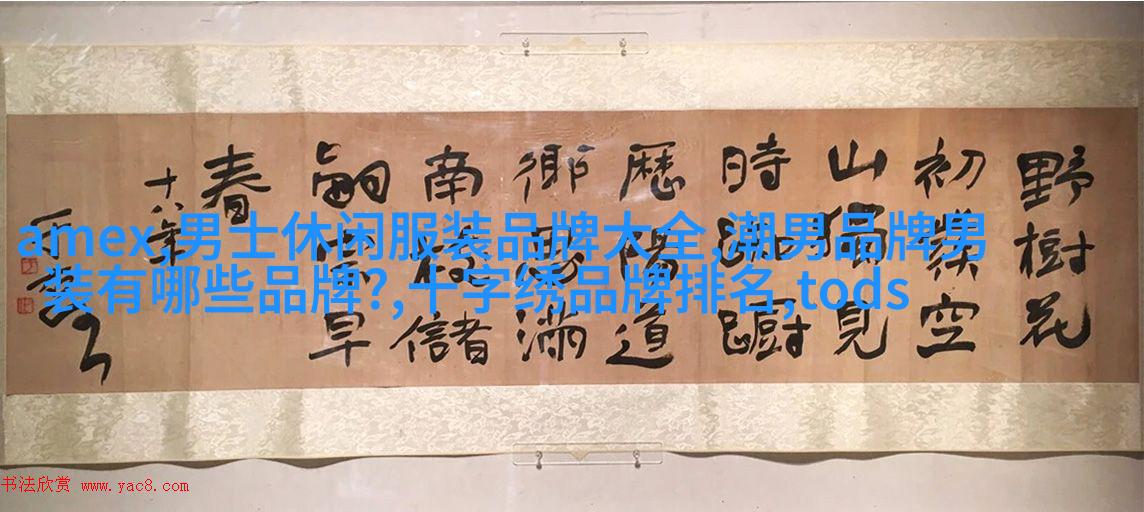 野樹花
初發空
山偶見
時踟蹰
歷陽道
鄉思滿
南枝儲
嗣宗早
春
十八年
amex,男士休闲服装品牌大全,潮男品牌男
装有哪些品牌?,十字绣品牌排名,tods
书法欣赏 www.yac8.com